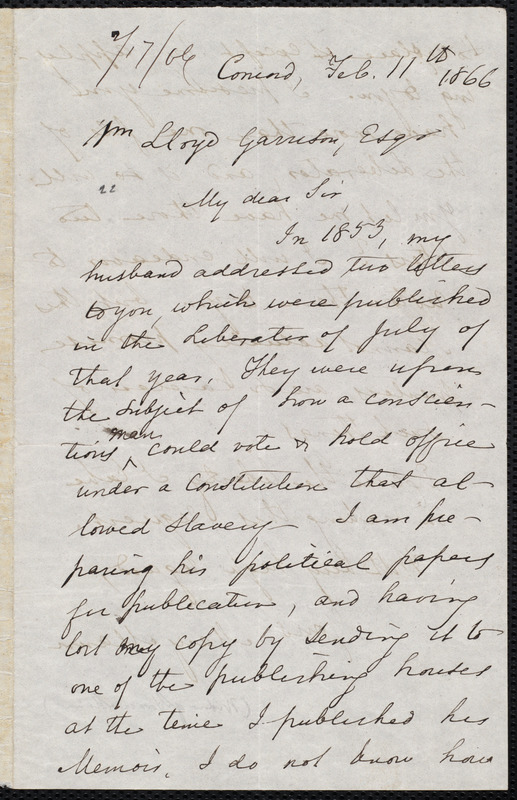 2/17/66
Concord, Feb. 11th 1866
Wm Lloyd Garrison, Esqr
My dear Sir,
In 1853, my
husband addressed two letters
to you, which were published
in the Liberator of July of
that year. They were upon
the subject of how a conscien-
tious man could vote & hold office
under a Constitution that al-
lowed slavery. I am pre-
paring his political papers
for publication, and having
lost my copy by sending it to
one of the publishing houses
at the time I published his
Memoir, I do not know how